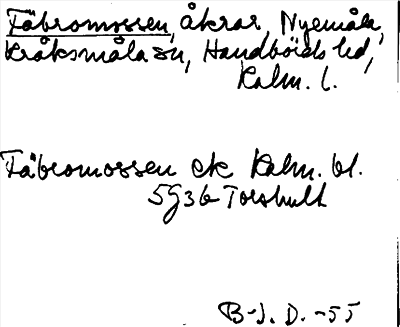 Fäbromossen, åkrar, Nyemåla,
Kråksmåla sn, Handbörds hd,
Kalm. l.
Fäbromossen ek Kalm. bl.
5G3b Torshult
B-J. D. -55